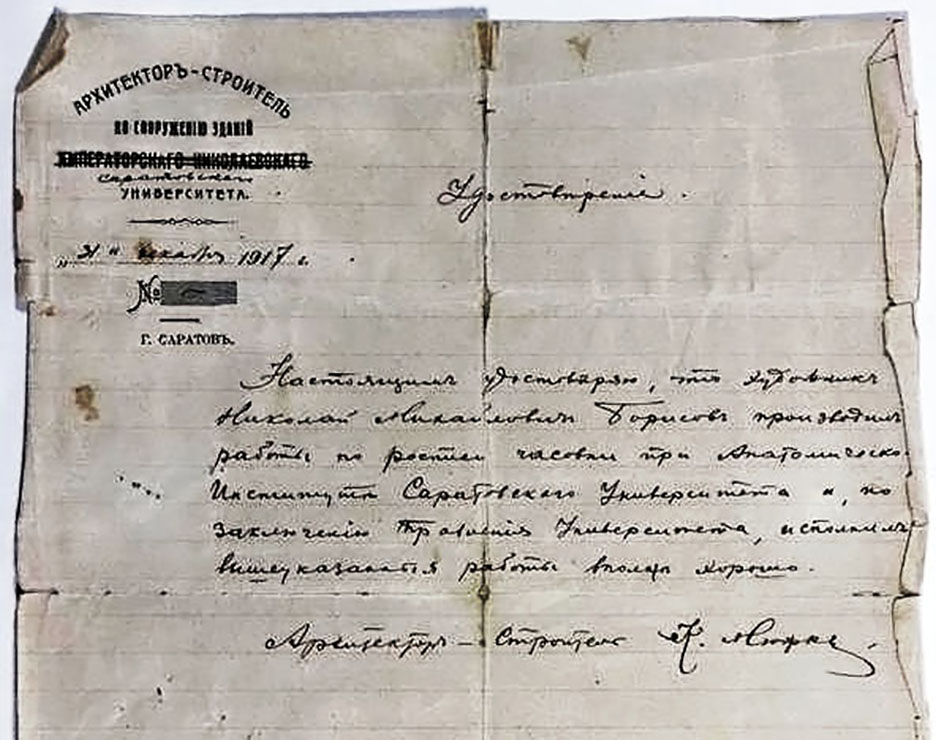 АРХИТЕКТОРЪ-СТРОИТЕЛЬ
ПО СООРУЖЕНІЮ ЗДАНІЙ
ИМПЕРАТОРСКАГО НИКОЛАЕВСКАГО
Саратовскаго
УНИВЕРСИТЕТА.
Удостовѣреніе.
„21“ декабря 1917 г.
№
Г. САРАТОВЪ.
Настоящимъ удостовѣряю, что художникъ
Николай Михайловичъ Борисовъ производилъ
работы по росписи часовни при Анатомическо
Институтѣ Саратовскаго Университета и, по
заключенію Правленія Университета, исполнилъ
вышеуказанныя работы вполнѣ хорошо.
Архитекторъ-Строитель К. Мюфке